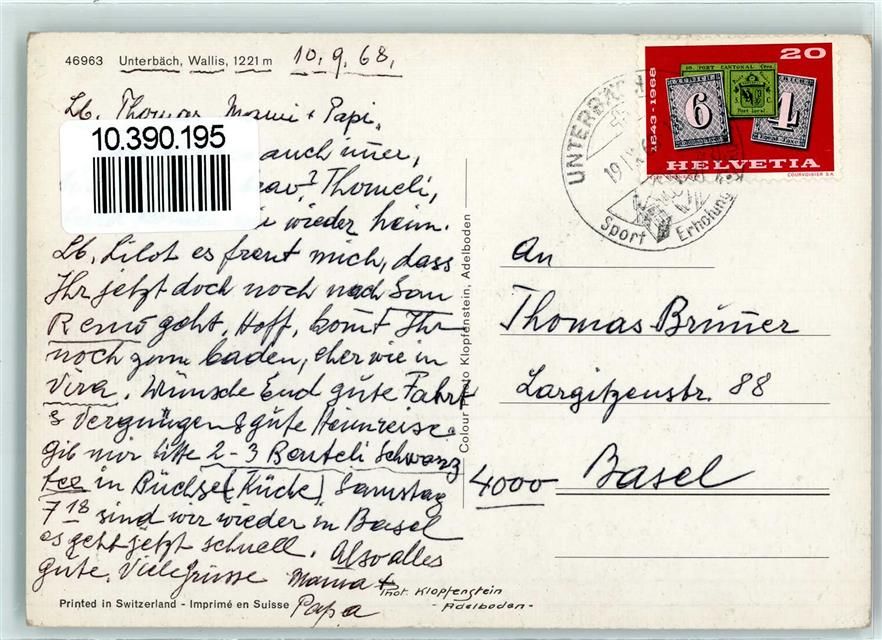 46963 Unterbäch, Wallis, 1221 m 10.9.68.
Lb. Thomas Mami + Papi,
10.390.195
auch im̅er,
brav? Thomeli,
wieder heim.
Lb. Lilot es freut mich, dass
Ihr jetzt doch noch nach San
Remo geht. Hoff, kom̅t Ihr
noch zum baden, eher wie in
Vira. Wünsche Euch gute Fahrt
& Vergnügen & gute Heimreise.
Gib mir bitte 2-3 Beuteli Schwarz
tee in Büchse (Küche) Samstag
7 18 sind wir wieder in Basel
es geht jetzt schnell. Also alles
gute. Viele Grüsse Mama +
Papa
Printed in Switzerland - Imprimé en Suisse
Phot. Klopfenstein
- Adelboden -
Colour Photo Klopfenstein, Adelboden
UNTERBÄCH
Sport Erholung
20
1843-1968
6
4
HELVETIA
COURVOISIER S.A.
An
Thomas Brun̅er
Largitzenstr. 88
4000 Basel